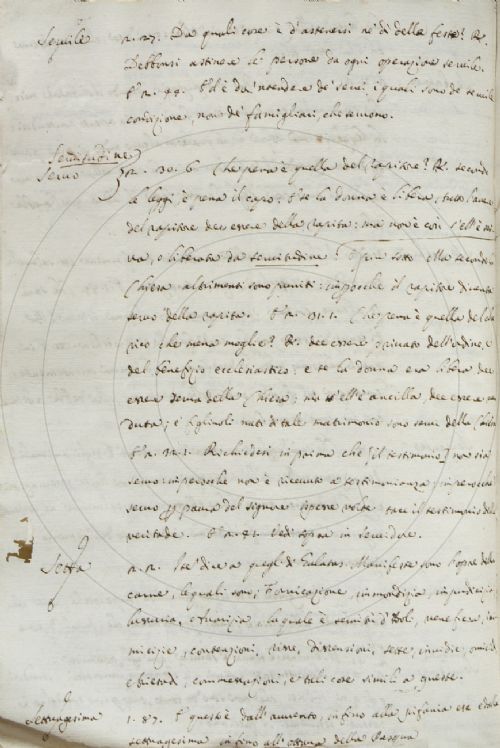 Servile n. 27. Da quali cose è d'astenersi ne' dì delle feste? R.
Debbonsi astinere le persone da ogni operazione servile.
E a n. 44. E s'è da 'ntendere de' servi, i quali sono de servile
condizione, non de' famigliari, che servono.
Servitudine
Servo n. 30. 6. Che pena è quella del rapitore? R. secondo
le leggi è pena il capo: e se la donna è libera, tutto l'avere
del rapitore dee essere della rapita: ma non è così s'ell'è
va, o liberata da servitudine: E più sotto Ma secondo
Chiesa altrimenti sono puniti: imperocchè il rapitore diventa
servo della rapita. E a n. 31. 1. Che pena è quella del che
rico che mena moglie? R. dee essere privato dell'ordine, e
del benefizio ecclesiastico: e se la donna era libera dee
essere serva della Chiesa; ma s'ell'è ancilla, dee essere ven
duta; e figliuoli nati di tale matrimonio sono servi della Chiesa
E a n. 32. 1. Richiedesi in prima che [il testimonio] non sia
servo: imperocchè non è ricevuto a testimonianza; imperocchè
servo per paura del signore spesse volte tace il testimonio della
veritade. E a n. 81. Vedi sopra in
Setta n. 2. dice a quegli di Galatas: Manifeste sono l'opere della
carne, le quali sono; Fornicazione, immondizia, impudicizia
lussuria, e Avarizia, la quale è servitù d'Idoli, veneficio, ini
micizie, contenzioni, risse, dissensioni, sette, invidie, omicidi
ebrietadi, commessazioni, e tali cose simili a queste.
Settuagesima 1. 87. E questo è dall'avvento, infino alla pifania ed e dalla
settuagesima infino all'ottava della Pasqua